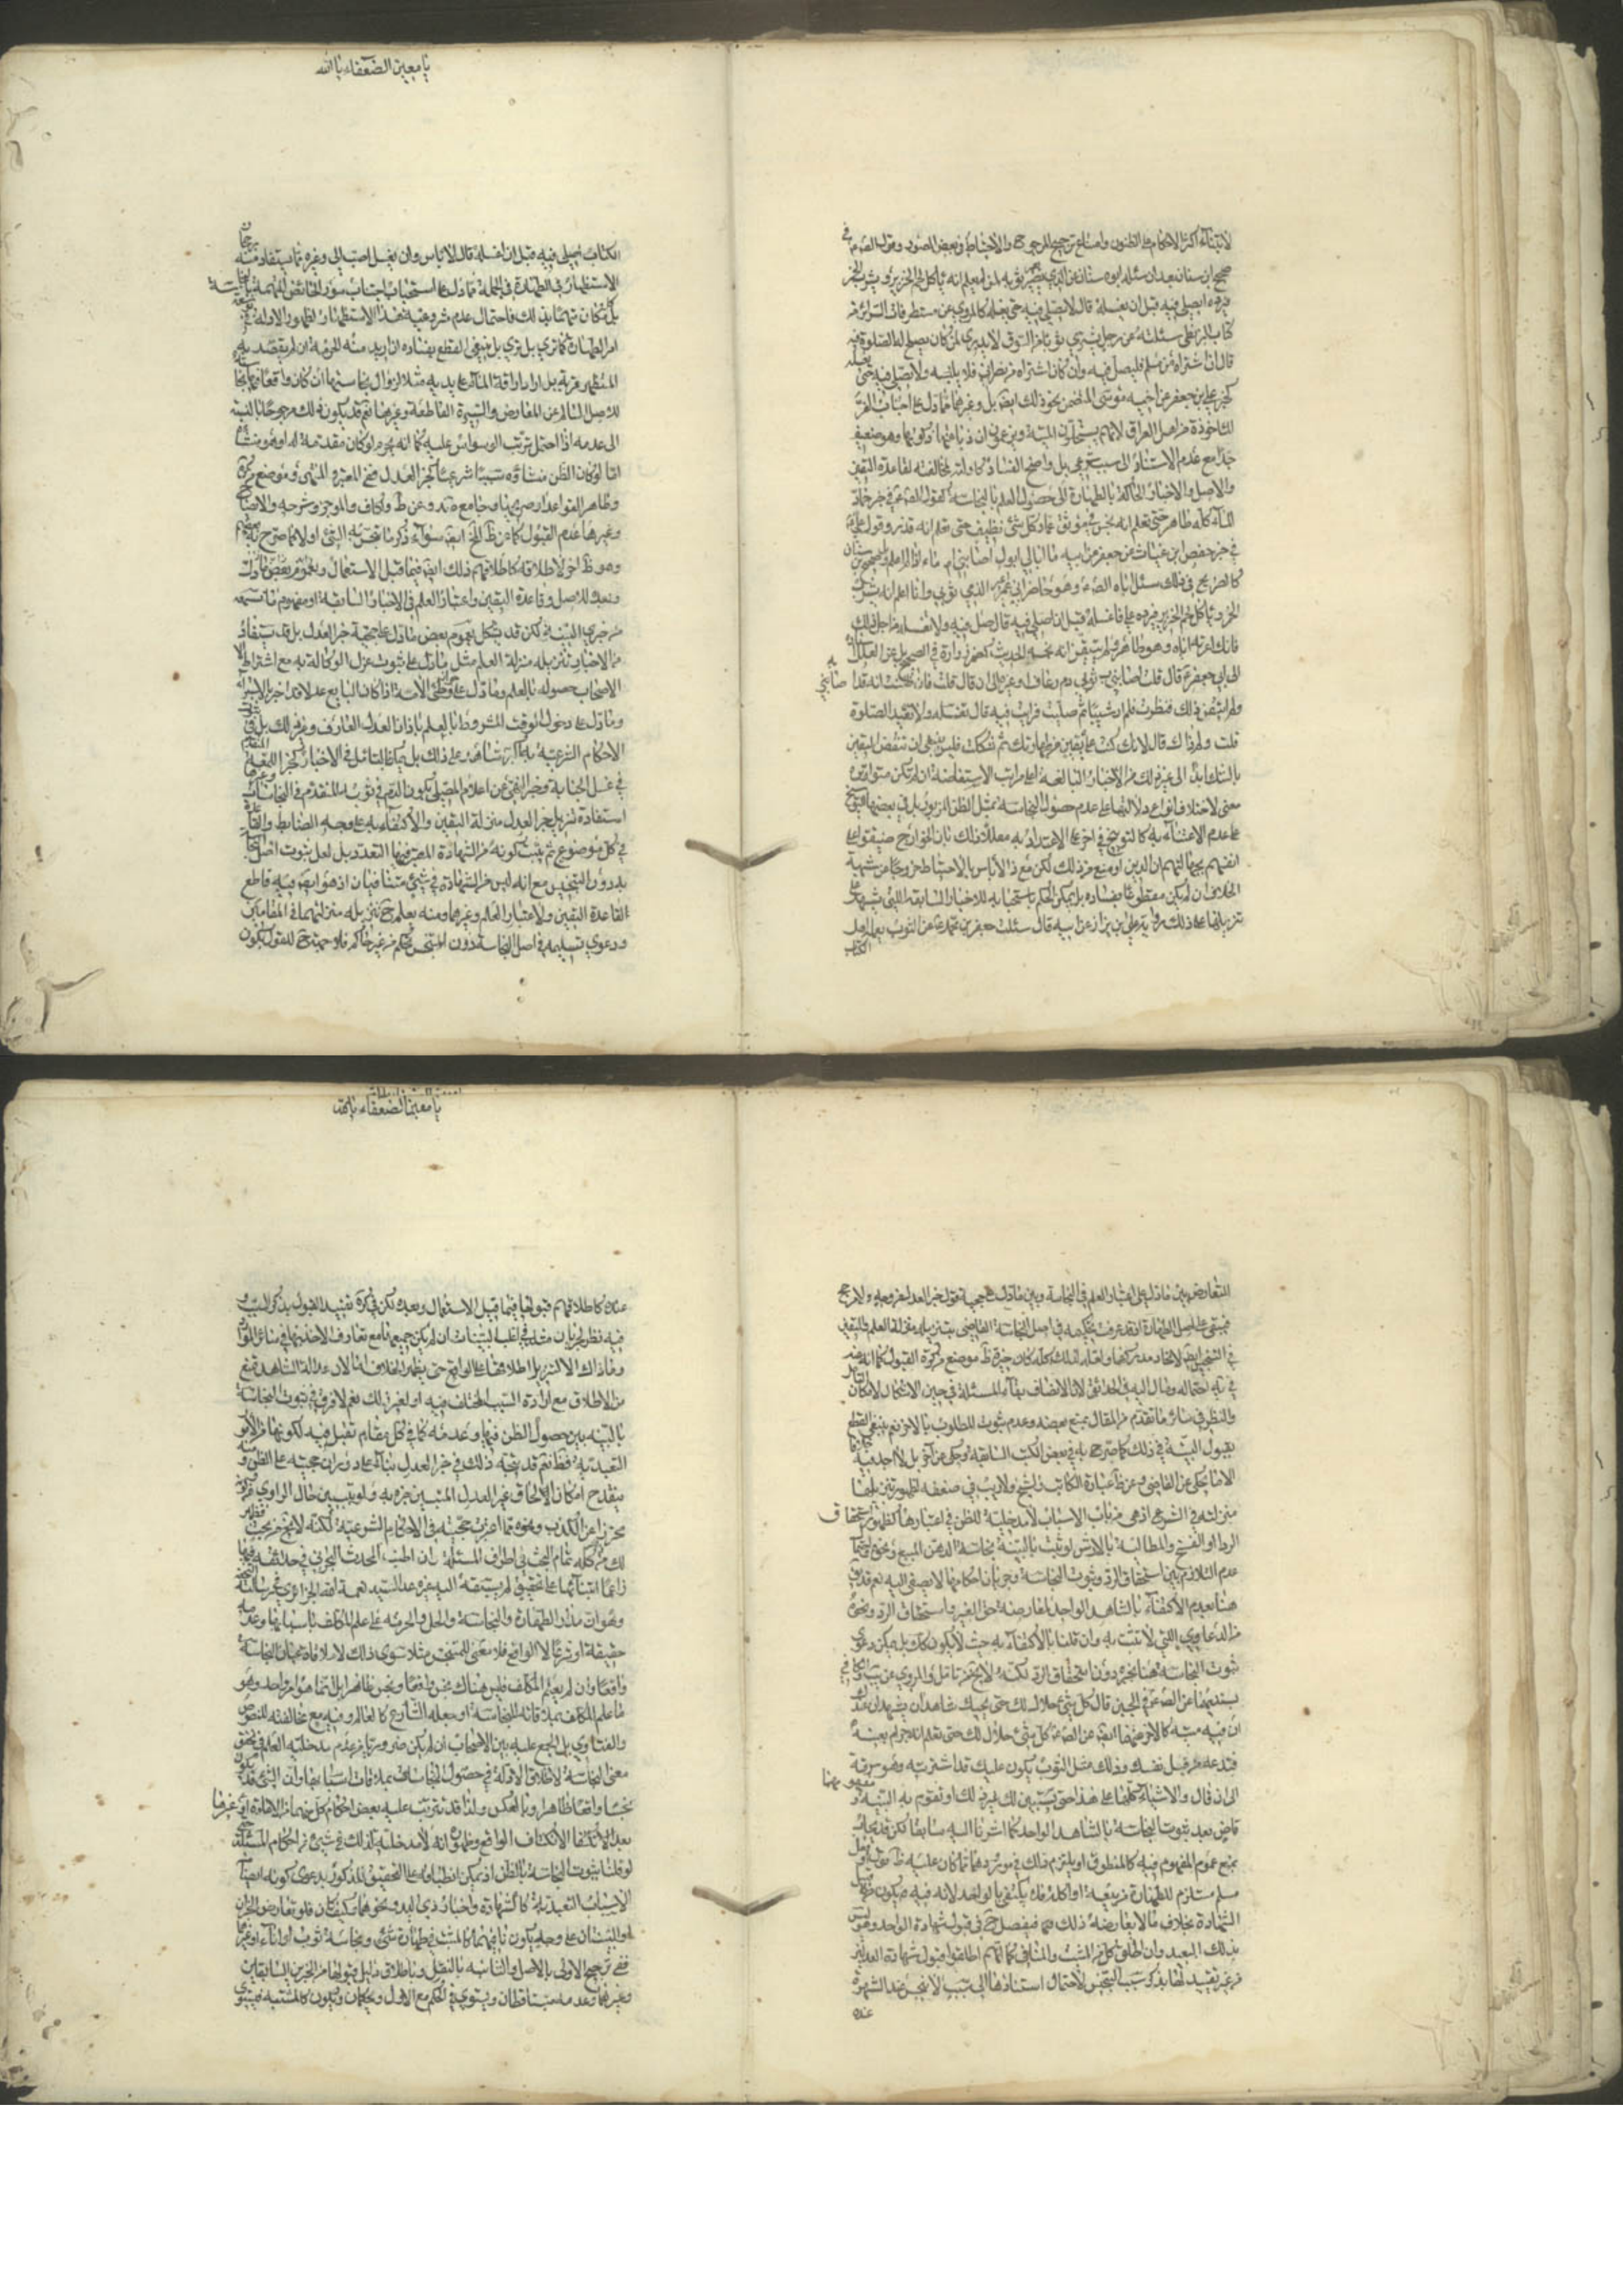 لابتناء اكثر الاحكام على الظنون وامتناع ترجيح المرجوح والاحتياط في بعض الصور وقول الص ع في
صحيح ابن سنان بعد ان سئله ابوه سنان عن الذي يعير ثوبه لمن يعلم انه ياكل لحم الخنزير ويشرب الخمر
فيرده ايصلي فيه قبل ان يغسله قال لا يصلي فيه حتى يغسله كالمروي عن مستطرفات السرائر من
كتاب البزنطي سئلته عن رجل يشتري ثوبا من السوق لا يدري لمن كان يصلح له الصلوة فيه
قال ان اشتراه من مسلم فليصل فيه وان كان اشتراه من نصراني فلا يلبسه ولا يصلي فيه حتى يغسله
كخبر علي بن جعفر عن اخيه موسى المتضمن نحو ذلك ايضا بل وغيرهما مما دل على اجتناب الفرا
المأخوذة من اهل العراق لانهم يستحلون الميتة ويزعمون ان دباغها ذكوتها وهو ضعيف
جدا مع عدم الاستناد الى سبب شرعي بل واضح الفساد كما ولته لمخالفته لقاعدة اليقين
والاصل والاخبار الحاكمة بالطهارة الى حصول العلم بالنجاسة كقول الص ع في خبر حماد
الماء كله طاهر حتى تعلم انه نجس في موثق عمار كل شيء نظيف حتى تعلم انه قذر وقول علي ع
في خبر حفص ابن غياث عن جعفر عن ابيه ما ابالي ابول اصابني ام ماء اذا لم اعلم وصحيح ابن سنان
كالصريح في ذلك سئل اباه الص ع وهو حاضر اني اعير الذمي ثوبي وانا اعلم انه يشرب
الخمر وياكل لحم الخنزير فيرده علي فاغسله قبل ان اصلي فيه قال صل فيه ولا تغسله من اجل ذلك
فانك اعرته اياه وهو طاهر ولم تستيقن انه نجسه الحديث كمضمر زرارة في الصحيح بل عن العلل اسناده
الى ابي جعفر ع قال قلت اصاب ثوبي دم رعاف او غيره الى ان قال قلت فان ظننت انه قد اصابه
ولم اتيقن ذلك فنظرت فلم ار شيئا ثم صليت فرايت فيه قال تغسله ولا تعيد الصلوة
قلت ولم ذاك قال لانك كنت على يقين من طهارتك ثم شككت فليس ينبغي ان تنقض اليقين
بالشك ابدا الى غير ذلك من الاخبار البالغة اعلى مراتب الاستفاضة ان لم تكن متواترة
معنى لاختلاف انواع دلالتها على عدم حصول النجاسة بمثل الظن المزبور بل في بعضها التصريح
على عدم الاعتناء به كما لتوبيخ في اخر على الاعتداد به معللا ذلك بان الخوارج ضيقوا على
انفسهم بجهالتهم ان الدين اوسع من ذلك لكن مع ذا لا باس بالاحتياط خروجا عن شبهة
الخلاف ان لم يكن مقطوعا بفساده بل يمكن الحكم باستحبابه للاخبار السابقة التي يشهد على
تنزيلها على ذلك رواية علي بن بزاز عن ابيه قال سئلت جعفر بن محمد ع عن الثوب يعمله اهل
الكتاب
يا معين الضعفاء يا الله
الكتاب يصلى فيه قبل ان اغسله قال لا باس وان يغسل احب الي وغيره مما يستفاد منه رجحان
الاستظهار في الطهارة في الجملة مما دل على استحباب اجتناب سؤر الحائض المتهمة بالنجاسة
بل كل من كان متهما بذلك فاحتمال عدم مشروعية هذا الاستظهار لظهور الادلة بتوسعة
امر الطهارة كما ترى بل ينبغي القطع بفساده ان اريد منه الحرمة ان لم يقصد به
المتطهر قربة بل اراد اراقة الماء على يديه مثلا لزوال نجاستها ان كان واقعا
للاصل السالم عن المعارض والسيرة القاطعة وغيرهما نعم قد يكون ذلك مرجوحا بالنسبة
الى عدمه اذا احتمل ترتب الوسواس عليه كما انه يحرم لو كان مقدمة له او هو منشاه
اما لو كان الظن منشاؤه سببا شرعيا كخبر العدل فخ المعتبر والمنتهى وموضع من كره
وظاهر القواعد او صريحها وجامع صد وعن ط وف والكاف والموجز وشرحه والايضاح
وغيرها عدم القبول كما عن ظ الخ ايضا سواء ذكر ما تنجس به الشيء او لا كما صرح به بعضهم
وهو ظ اخر لاطلاقه كاطلاقهم ذلك ايضا فيما قبل الاستعمال وبعده
وبعده للاصل وقاعدة اليقين واعتبار العلم في الاخبار السابقة او مفهوم ما تسمعه
من خبري البينة لكن قد يشكل بعموم بعض ما دل على حجية خبر العدل بل قد يستفاد
من الاخبار تنزيله منزلة العلم مثل ما دل على ثبوت عزل الوكالة به مع اشتراط
الاصحاب حصوله بالعلم وما دل على وطئ الامة اذا كان البايع عدلا قد اخبر بالاستبراء
وما دل على دخول الوقت المشروط بالعلم باذان العدل العارف وغير ذلك بل ثبوت
الاحكام الشرعية به اكبر شاهد على ذلك بل يكاد المتامل في الاخبار كخبر اللمعة
في غسل الجنابة وخبر النهي عن اعلام المصلي بكون الدم في ثوبه المتقدم في النجاسات
استفادة تنزيل خبر العدل منزلة اليقين والاكتفاء به على وجه الضابط والقاعدة
في كل موضوع لم يثبت كونه من الشهادة المعتبر فيها التعدد بل لعل ثبوت اصل النجاسة
بدون التنجيس مع انه ليس من الشهادة في شيء متنافيان اذ هو ايضا فيه قاطع
لقاعدة اليقين ولاعتبار العلم وغيرهما ومنه يعلم ح تنزيله منزلتهما في المقامين
ودعوى تسليمه في اصل النجاسة دون التنجس تحكم من غير حاكم فلا وجه ح للقول بكون
التعارض بين ما دل على اعتبار العلم في النجاسة وبين ما دل على حجية قول خبر العدل من وجه ولا ترجيح
فيبقى على اصل الطهارة اذ قد عرفت تحكيمه في اصل النجاسة القاضي بتنزيله منزلة العلم واليقين
في التنجيس ايضا لاتحاد مدركهما ولعله لذلك كله كان خيرة ظ موضع من كرة القبول كما انه عن
في نهاية احتماله ومال اليه في الحدائق الا ان الانصاف بقاء المسئلة في حيز الاشكال لامكان التامل
والنظر في سائر ما تقدم من المقال بمنع بعضه وعدم ثبوت المطلوب بالاخر نعم ينبغي القطع
بقبول البينة في ذلك كما صرح به في بعض الكتب السابقة وحكي عن اخر بل لا اجد فيه خلافا
الا ما يحكى عن القاضي وعن ظ عبارة الكاتب والشيخ ولا ريب في ضعفه لظهور تنزيلها
منزلته في الشرع اذ هي من باب الاسباب لا مدخلية للظن في اعتبارها كظهور استحقاق
الرد او الفسخ والمطالبة بالارش لو ثبت بالبينة نجاسة الدهن المبيع ونحوه في
عدم التلازم بين استحقاق الرد وثبوت النجاسة وجريان احكامها لا يصغى اليه نعم قد
هنا بعدم الاكتفاء بالشاهد الواحد لمعارضته حق الغير واستحقاق الرد ونحوه
من الدعاوي اللتي لا تثبت به وان قلنا بالاكتفاء به حيث لا يكون كك بل يمكن دعوى
ثبوت النجاسة هنا بخبره دون استحقاق الرد لكنه لا يخ من تامل والمروي عن الكافي
بسنديهما عن الص ع في الجبن قال كل شيء حلال لك حتى يجيئك شاهدان يشهدان عندك
ان فيه ميتة كالاخر عنهما ايضا عن الص ع كل شيء حلال لك حتى تعلم انه حرام بعينه
فتدعه من قبل نفسك وذلك مثل الثوب يكون عليك قد اشتريته وهو سرقة
الى ان قال والاشياء كلها على هذا حتى يستبين لك غير ذلك او تقوم به البينة و مفهومهما
قاض بعدم ثبوت النجاسة بالشاهد الواحد كما اشرنا اليه سابقا لكن قد يجاب
بمنع عموم المفهوم فيه كالمنطوق او يلتزم ذلك في موردهما مما كان عليه ظ
مسلم مستلزم للطهارة من بيعه او اكله فلا يكتفى بالواحد لانه فيه فيكون من
الشهادة بخلاف ما لا يعارضه ذلك فيفصل ح في قبول شهادة الواحد وهو ليس
بذلك البعيد وان اطلق كل من المثبت والنافي كما انهم اطلقوا قبول شهادة العدلين
من غير تقييد لها بذكر سبب التنجس لاحتمال استنادها الى سبب لا ينجس عند المشهود
عنده
يا معين الضعفاء يا الله
عنده كاطلاقهم قبولها فيما قبل الاستعمال وبعده لكن في كرة تقييد القبول بذكر السبب و
فيه نظر لجريان مثله في اغلب البينات ان لم يكن جميعها مع تعارف الاخذ بها في سائر المقامات
وما ذاك الا لتنزيل اطلاقها على الواقع حتى يظهر الخلاف اما لان عدالة الشاهد تمنع
من الاطلاق مع ارادة السبب المختلف فيه او لغير ذلك نعم لا فرق في ثبوت النجاسة
بالبينة بين حصول الظن فيها وعدمه كما في كل مقام تقبل فيه لكونها من الامور
التعبدية فقط نعم قد يتجه ذلك في خبر العدل بناء على دوران حجيته على الظن و منه
ينقدح امكان الحاق غير العدل المتبين خبره به ولو بتبين حال الراوي من كونه
متحرزا عن الكذب ونحوه مما اعتبرت حجيته في الاحكام الشرعية لكنه لا يخ من بحث فظهر
لك من ذلك كله تمام البحث في اطراف المسئلة وان اطنب المحدث البحراني في حدائقه فيها
زاعما ابتنائها على تحقيق لم يسبقه اليه غيره عدا السيد نعمة الله الجزائري في رسالته التحفة
وهو ان مدار الطهارة والنجاسة والحل والحرمة على علم المكلف باسبابها وعدمه
حقيقة او شرعا لا الواقع فلا معنى للمتنجس مثلا سوى ذلك لا ملاقاة عيان النجاسة
واقعا وان لم يعلم المكلف فليس هناك نجس واقعا ونجس ظاهرا بل انما هو امر واحد وهو
ما علم المكلف بملاقاته للنجاسة او جعله الشارع كالعالم وفيه مع مخالفته للنصوص
والفتاوي بل المجمع عليه بين الاصحاب ان لم يكن ضروريا من عدم مدخلية العلم في تحقق
معنى النجاسة لاطلاق الادلة في حصول النجاسات بملاقات اسبابها وان الشيء قد يكون
نجسا واقعا طاهرا وبالعكس ولذا قد تترتب عليه بعض احكام كل منهما من الاعادة او غيرها
بعد الانكشاف الواقع وظهوره انه لا مدخلية لذلك في شيء من احكام المسئلة
لو قلنا بثبوت النجاسة بالظن اذ يمكن انطباقه على التحقيق المذكور بدعوى كونه ايضا من
الاسباب التعبدية كالشهادة واخبار ذي اليد ونحوهما وكيف كان فلو تعارض الخبران
او البينتان على وجه يكون نافيهما كالمثبت في طهارة شيء ونجاسة ثوب او اناء او غيرهما
ففي ترجيح الاولى بالاصل والثانيه بالنقل وباطلاق دليل قبولها من الخبرين السابقين
وغيرهما وعدمه فيتساقطان ويستوي في الحكم مع الاول ويحكمان ويكون كالمشتبه فيستوي